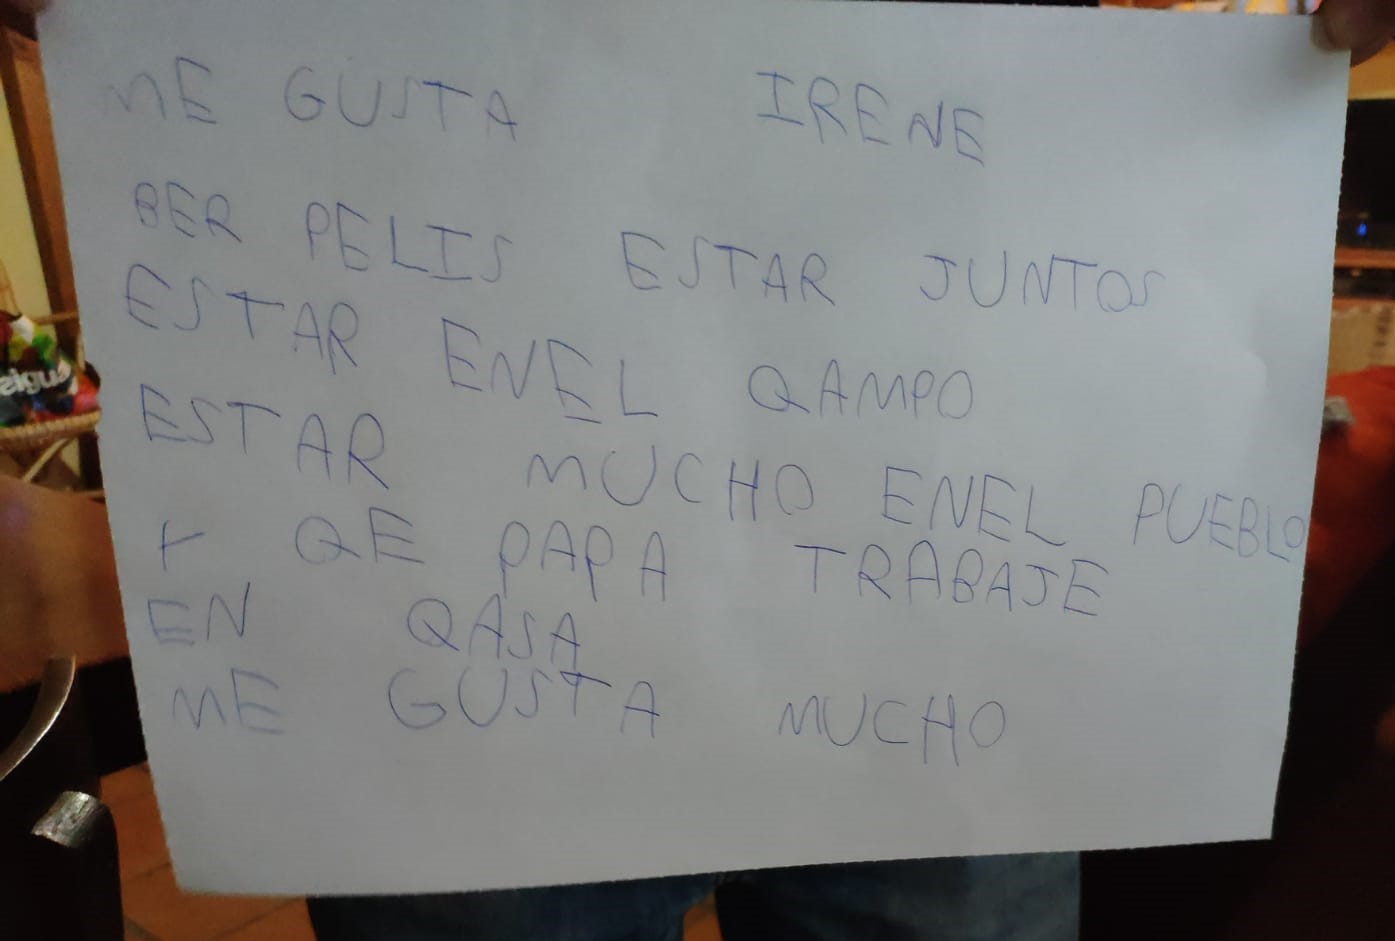 ME GUSTA IRENE
BER PELIS ESTAR JUNTOS
ESTAR ENEL QAMPO
ESTAR MUCHO ENEL PUEBLO
Y QE PAPA TRABAJE
EN QASA
ME GUSTA MUCHO